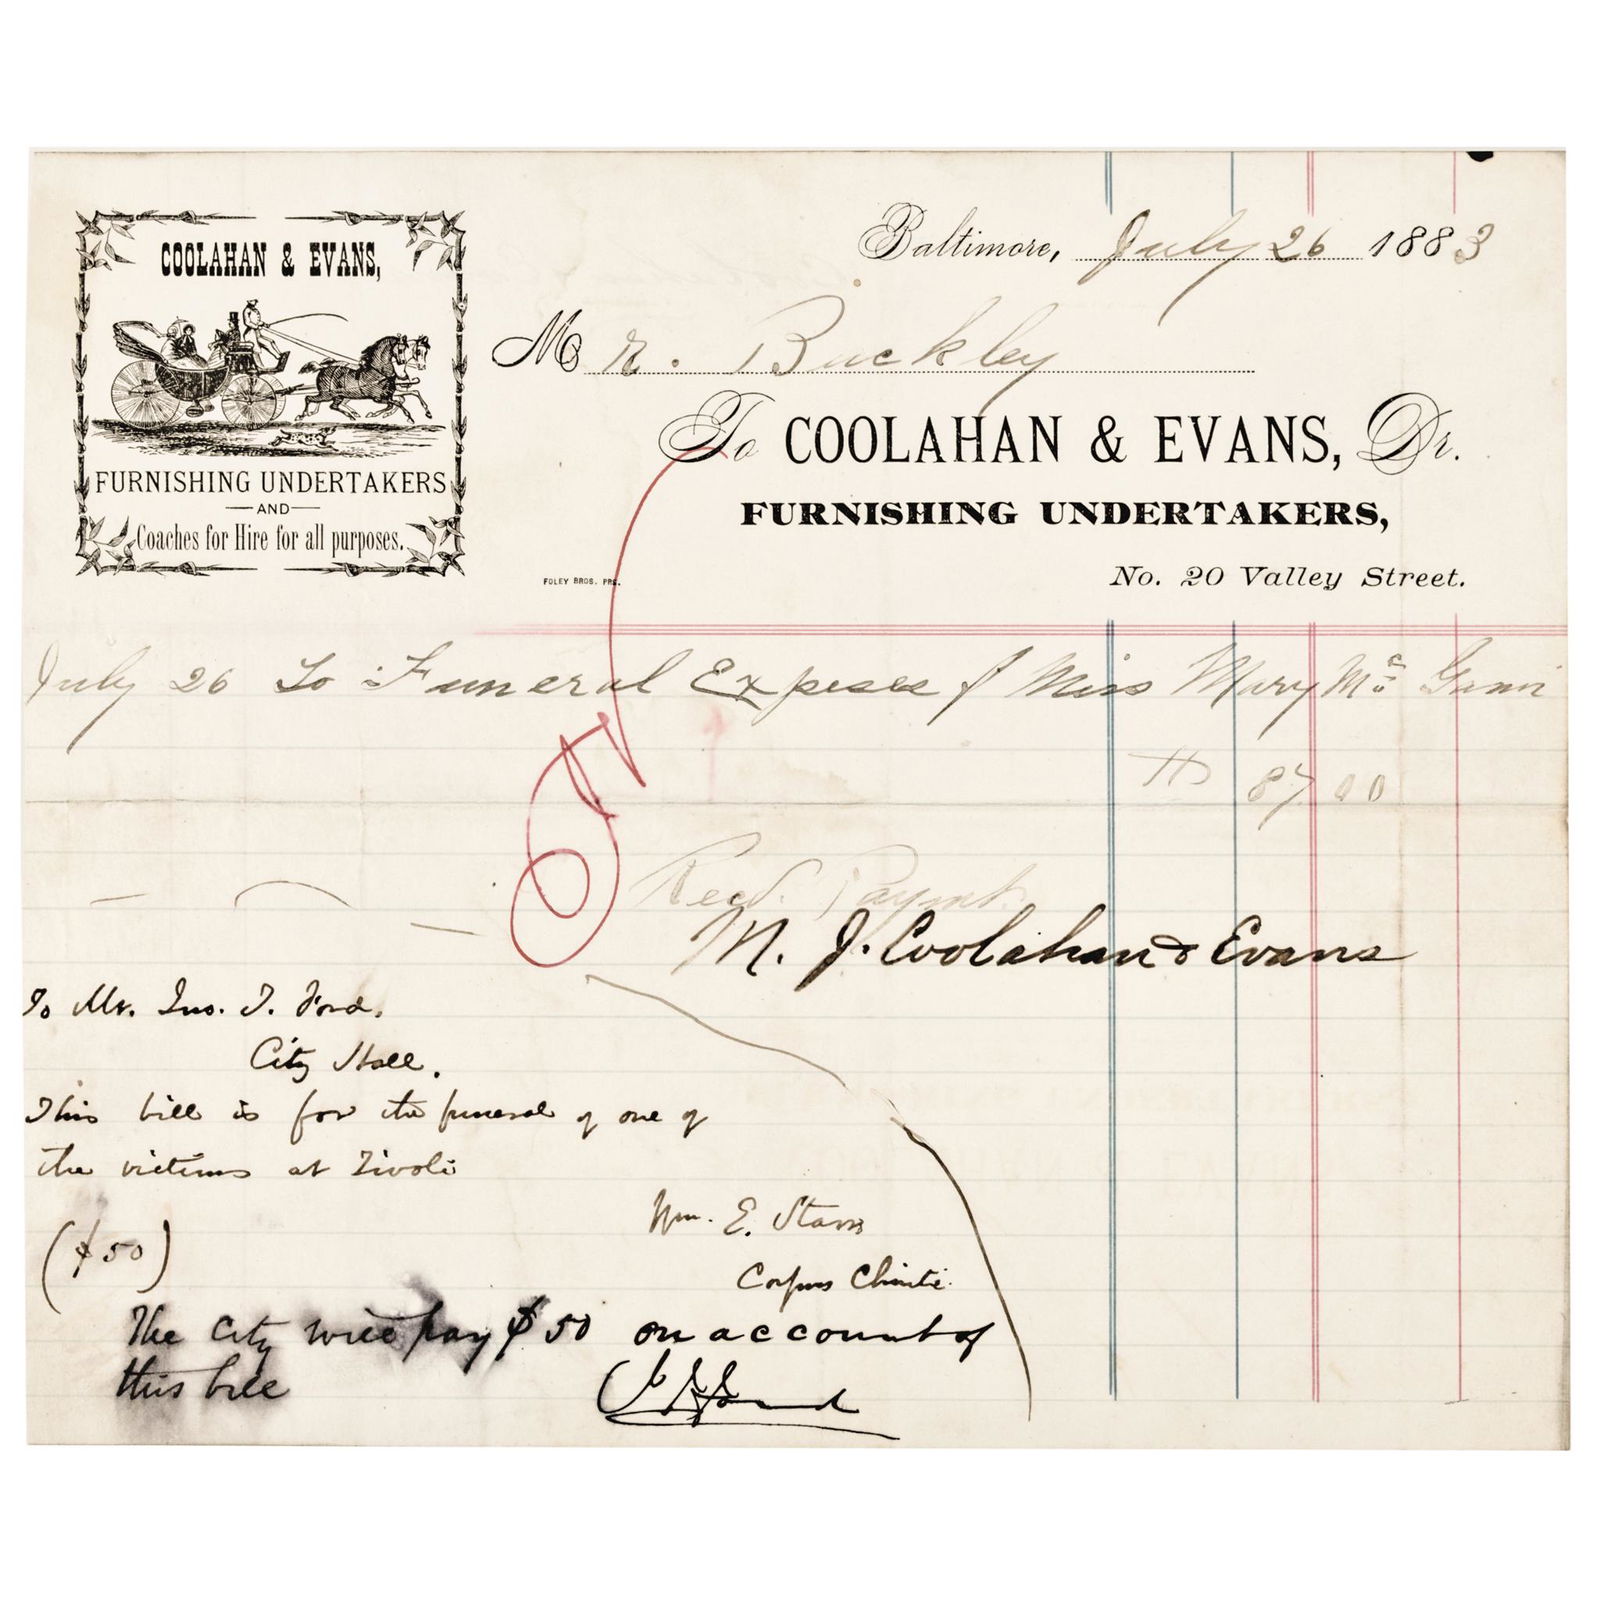 COOLAHAN & EVANS,
FURNISHING UNDERTAKERS
—AND—
Coaches for Hire for all purposes.
Baltimore, July 26 1883
Mr. Buckley
To COOLAHAN & EVANS, Dr.
FURNISHING UNDERTAKERS,
No. 20 Valley Street.
FOLEY BROS. PRS.
July 26 To Funeral Expeses of Miss Mary Mc
87 00
Recd. Paymt.
M. J. Coolahan & Evans
To Mr. Jno. T. Ford.
City Hall.
This bill is for the funeral of one of
the victims at Tivoli
Wm. E. Starr
Corpus Christi
($50)
The City will pay $50 on account of
this bill
J. T. Ford